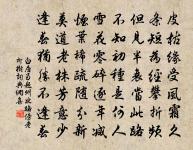 皮枯緣受風霜久
條短為應攀折頻
但見半衰當此路
不知初種是何人
雪花零碎逐年減
煙葉稀疏隨分新
莫道老株芳意少
逢春猶勝不逢春
白居易題州北路傍老
柳樹詞典網